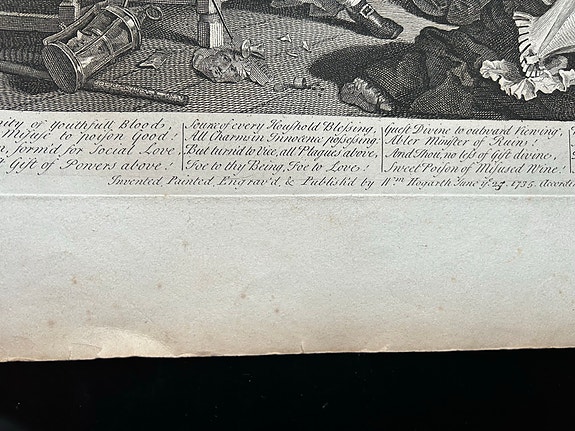 nity of Youthfull Blood,
Misuse to poison Good!
n, form'd for Social Love,
Gift of Powers above!
Source of every Houshold Blessing,
All Charms in Innocence possessing:
But turn'd to Vice, all Plagues above,
Foe to thy Being, Foe to Love!
Guest Divine to outward Viewing,
Abler Minister of Ruin!
And Thou, no less of Gift divine,
Sweet Poison of Misused Wine!
Invented, Painted, Engrav'd, & Publish'd by Wm. Hogarth June ye. 25. 1735. Accordi